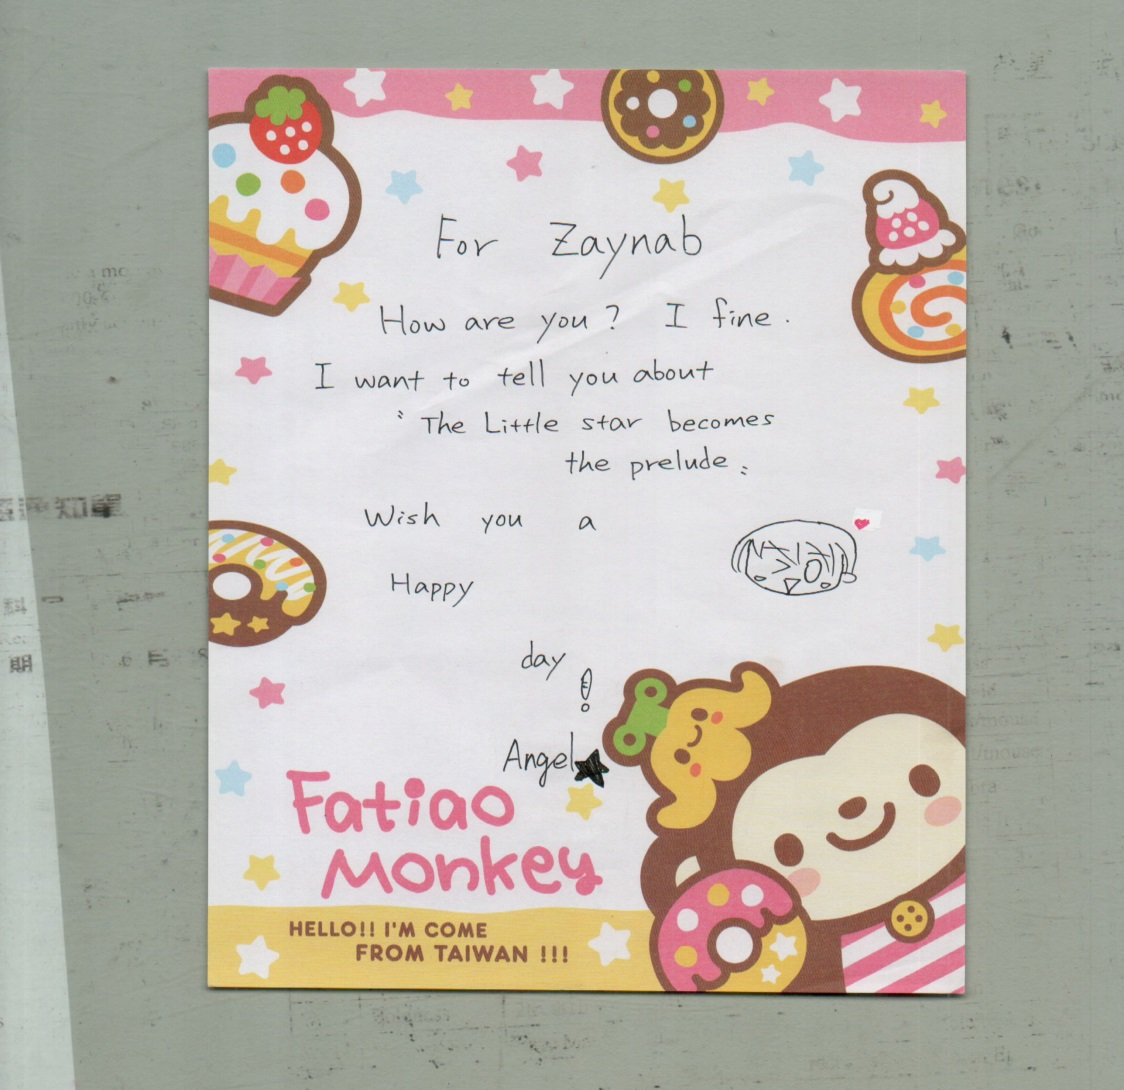 For Zaynab
How are you? I fine.
I want to tell you about
〝The Little star becomes
the prelude〟
Wish you a
Happy
day
!
Angel★
Fatiao
Monkey
HELLO!! I'M COME
FROM TAIWAN !!!